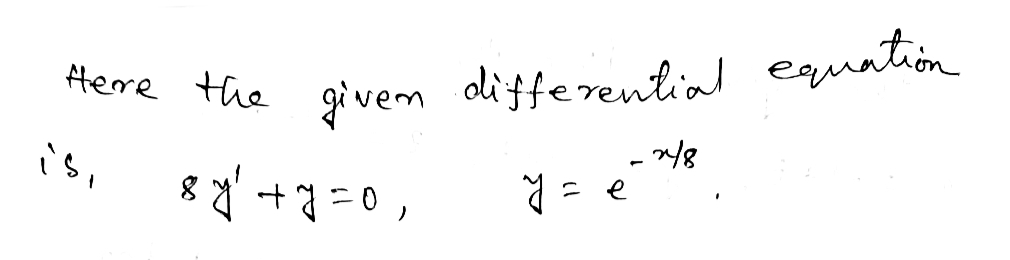 Here the given differential equation
is, 8y' + y = 0, y = e^{-x/8}.